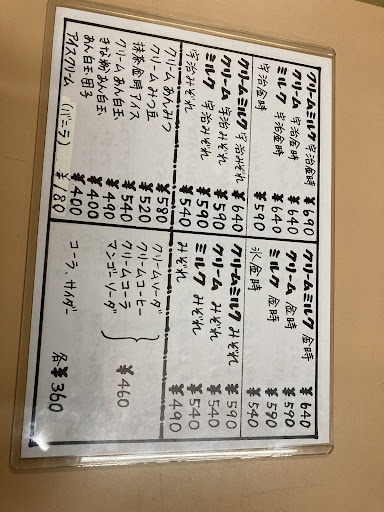 クリームミルク 宇治金時 ¥690
クリーム 宇治金時 ¥640
ミルク 宇治金時 ¥640
宇治金時 ¥590
クリームミルク 宇治みぞれ ¥640
クリーム 宇治みぞれ ¥590
ミルク 宇治みぞれ ¥590
宇治みぞれ ¥540
クリームあんみつ ¥580
クリームみつ豆 ¥520
抹茶金時アイス ¥540
クリームあん白玉 ¥490
きな粉あん白玉 ¥400
あん白玉団子 ¥400
アイスクリーム (バニラ) ¥180
クリームミルク 金時 ¥640
クリーム 金時 ¥590
ミルク 金時 ¥590
氷金時 ¥540
クリームミルク みぞれ ¥590
クリーム みぞれ ¥540
ミルク みぞれ ¥540
みぞれ ¥490
クリームソーダ
クリームコーヒー
クリームコーラ
マンゴソーダ
¥460
コーラ、サイダー 各¥360